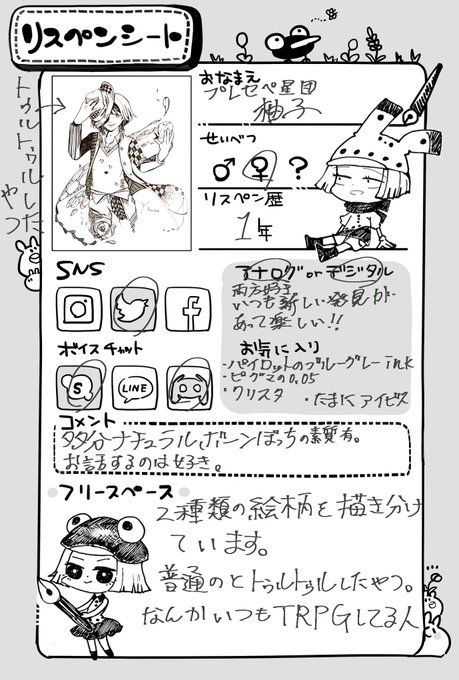 リスペンシート
トゥルトゥルしたやつ
おなまえ
プレセペ星団
柚子
せいべつ
♂ ♀ ?
リスペン歴
1年
SNS
アナログ or デジタル
両方好き
いつも新しい発見が
あって楽しい!!
ボイスチャット
LINE
お気に入り
・パイロットのブルーグレーink
・ピグマの0.05
・クリスタ ・たまにアイビス
コメント
多分ナチュラルボーンぼっちの素質有。
お話するのは好き。
フリースペース
2種類の絵柄を描き分け
ています。
普通のとトゥルトゥルしたやつ。
なんかいつもTRPGしてる人